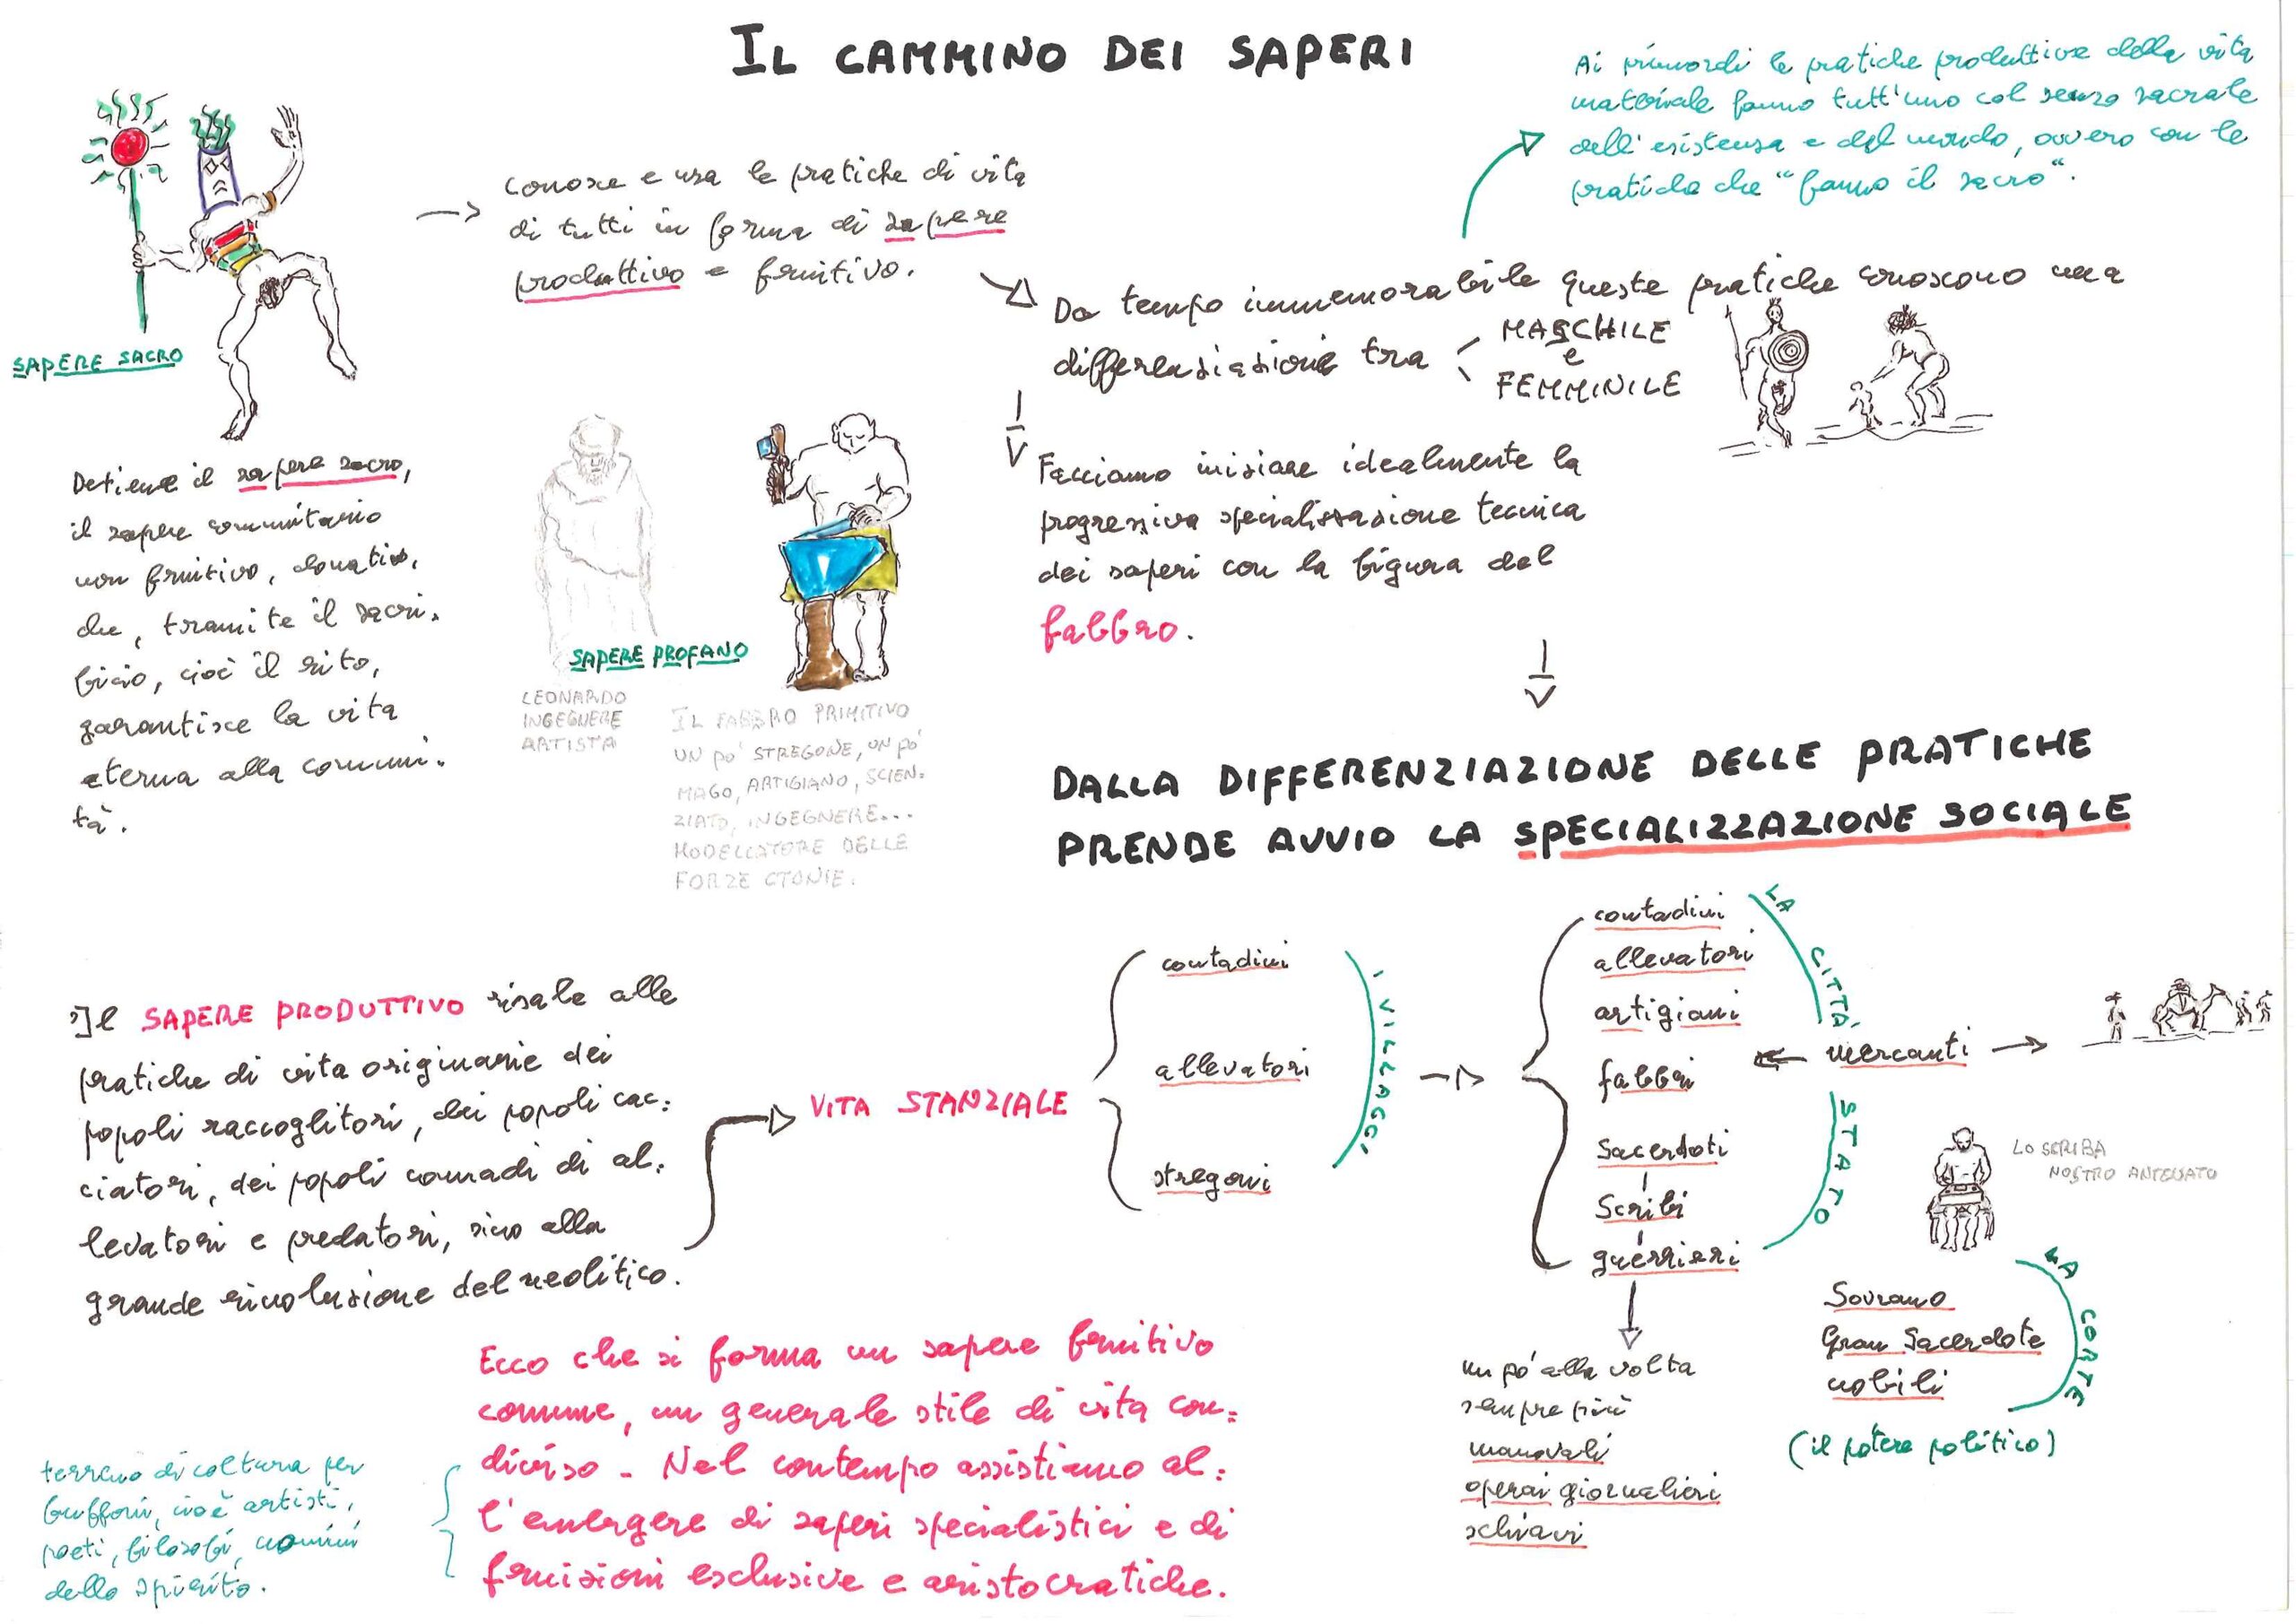 IL CAMMINO DEI SAPERI
Ai primordi le pratiche produttive della vita
materiale fanno tutt'uno col senso sacrale
dell'esistenza e del mondo, ovvero con le
pratiche che "fanno il sacro".
SAPERE SACRO
conosce e usa le pratiche di vita
di tutti in forma di sapere
produttivo e fruitivo.
Da tempo immemorabile queste pratiche conoscono una
differenziazione tra
MASCHILE
e
FEMMINILE
Detiene il sapere sacro,
il sapere comunitario
non fruitivo, donativo,
che, tramite il sacri.
ficio, cioè il rito,
garantisce la vita
eterna alla comuni.
tà.
SAPERE PROFANO
LEONARDO
INGEGNERE
ARTISTA
IL FABBRO PRIMITIVO
UN PO' STREGONE, UN PO'
MAGO, ARTIGIANO, SCIEN.
ZIATO, INGEGNERE...
MODELLATORE DELLE
FORZE CTONIE.
Facciamo iniziare idealmente la
progressiva specializzazione tecnica
dei saperi con la figura del
fabbro.
DALLA DIFFERENZIAZIONE DELLE PRATICHE
PRENDE AVVIO LA SPECIALIZZAZIONE SOCIALE
Il SAPERE PRODUTTIVO risale alle
pratiche di vita originarie dei
popoli raccoglitori, dei popoli cac:
ciatori, dei popoli nomadi di al.
levatori e predatori, sino alla
grande rivoluzione del neolitico.
VITA STANZIALE
contadini
allevatori
stregoni
I VILLAGGI
contadini
allevatori
artigiani
fabbri
Sacerdoti
Scribi
guerrieri
LA CITTÀ
STATO
mercanti
LO SCRIBA
NOSTRO ANTENATO
Sovrano
Gran Sacerdote
nobili
LA CORTE
(il potere politico)
un po' alla volta
sempre più
manovali
operai giornalieri
schiavi
Ecco che si forma un sapere fruitivo
comune, un generale stile di vita con:
diviso - Nel contempo assistiamo al:
l'emergere di saperi specialistici e di
fruizioni esclusive e aristocratiche.
terreno di coltura per
buffoni, cioè artisti,
poeti, filosofi, uomini
dello spirito.